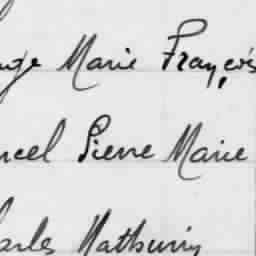 Marie François
Marcel Pierre Marie
Charles Mathurin